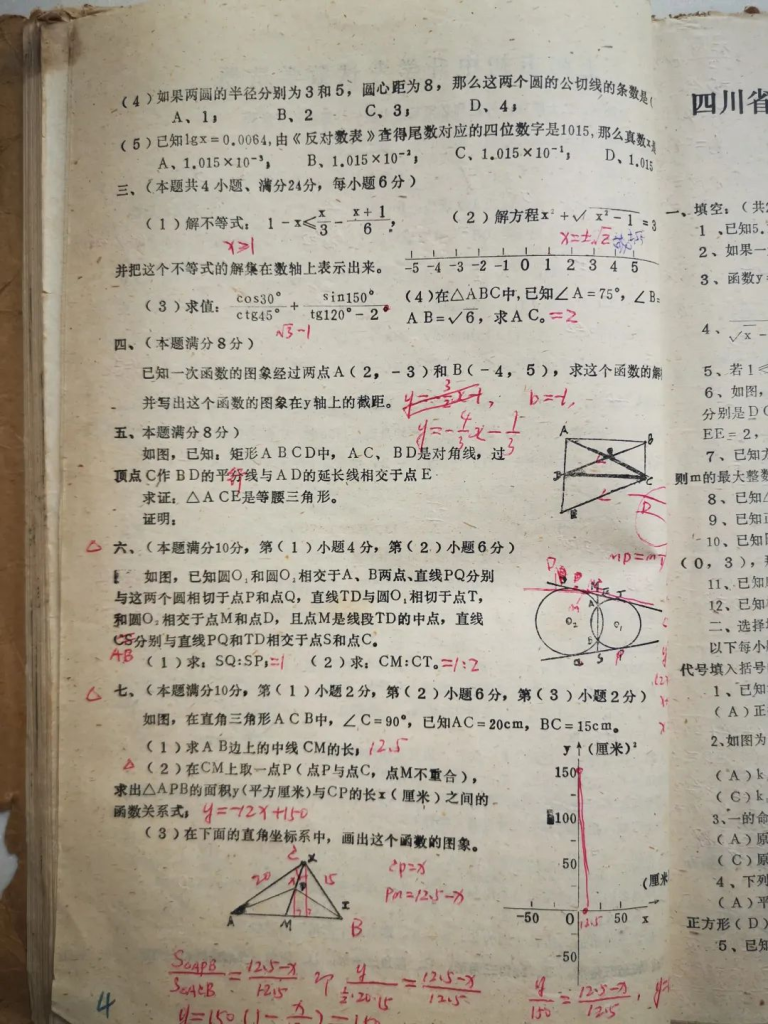 (4)如果两圆的半径分别为3和5，圆心距为8，那么这两个圆的公切线的条数是(
A、1； B、2 C、3； D、4；
(5)已知lgx=0.0064,由《反对数表》查得尾数对应的四位数字是1015,那么真数x
A、1.015×10⁻³； B、1.015×10⁻²； C、1.015×10⁻¹； D、1.015
三、(本题共4小题、满分24分，每小题6分)
(1)解不等式： 1-x≤x/3-(x+1)/6， (2)解方程x²+√(x²-1)=3
x≥1 x=±√2
并把这个不等式的解集在数轴上表示出来。 -5 -4 -3 -2 -1 0 1 2 3 4 5
(3)求值： cos30°/ctg45° + sin150°/(tg120°-2) (4)在△ABC中,已知∠A=75°，∠B=
√3-1 AB=√6，求AC。=2
四、(本题满分8分)
已知一次函数的图象经过两点A(2，-3)和B(-4，5)，求这个函数的解
并写出这个函数的图象在y轴上的截距。 b=-1,
y=-4/3x-1/3
五、本题满分8分)
如图，已知：矩形ABCD中，AC、BD是对角线，过
顶点C作BD的平行线与AD的延长线相交于点E
求证：△ACE是等腰三角形。
证明：
A B D C E
六、(本题满分10分，第(1)小题4分，第(2)小题6分)
如图，已知圆O₁和圆O₂相交于A、B两点、直线PQ分别
与这两个圆相切于点P和点Q，直线TD与圆O₁相切于点T，
和圆O₂相交于点M和点D，且点M是线段TD的中点，直线
CS分别与直线PQ和TD相交于点S和点C。
AB
(1)求：SQ:SP；=1 (2)求：CM:CT。=1:2
O₂ O₁
七、(本题满分10分，第(1)小题2分，第(2)小题6分，第(3)小题2分)
如图，在直角三角形ACB中，∠C=90°，已知AC=20cm，BC=15cm。
(1)求AB边上的中线CM的长；12.5
(2)在CM上取一点P(点P与点C，点M不重合)，
求出△APB的面积y(平方厘米)与CP的长x(厘米)之间的
函数关系式；y=-12x+150
(3)在下面的直角坐标系中，画出这个函数的图象。
y (厘米)²
150
100
50
(厘米
-50 0 12.5 50 x
-50
C x
20 15
P
A M x B
CP=x
PM=12.5-x
S△APB/S△ACB=(12.5-x)/12.5 y/(½·20·15)=(12.5-x)/12.5 y/150=(12.5-x)/12.5,
4
四川省
一、填空：(共
1、已知5.
2、如果一
3、函数y=
4、√x-
5、若1≤
6、如图，
分别是DC
EE=2，
7、已知方
则m的最大整数
8、已知
9、已知
10、已知
(0，3)，
11、已知
12、已知
二、选择
以下每小
代号填入括号
1、已知
(A)正
2、如图为
(A)k
(C)k
3、一的命
(A)原
(C)原
4、下列
(A)平
正方形(D)
5、已知